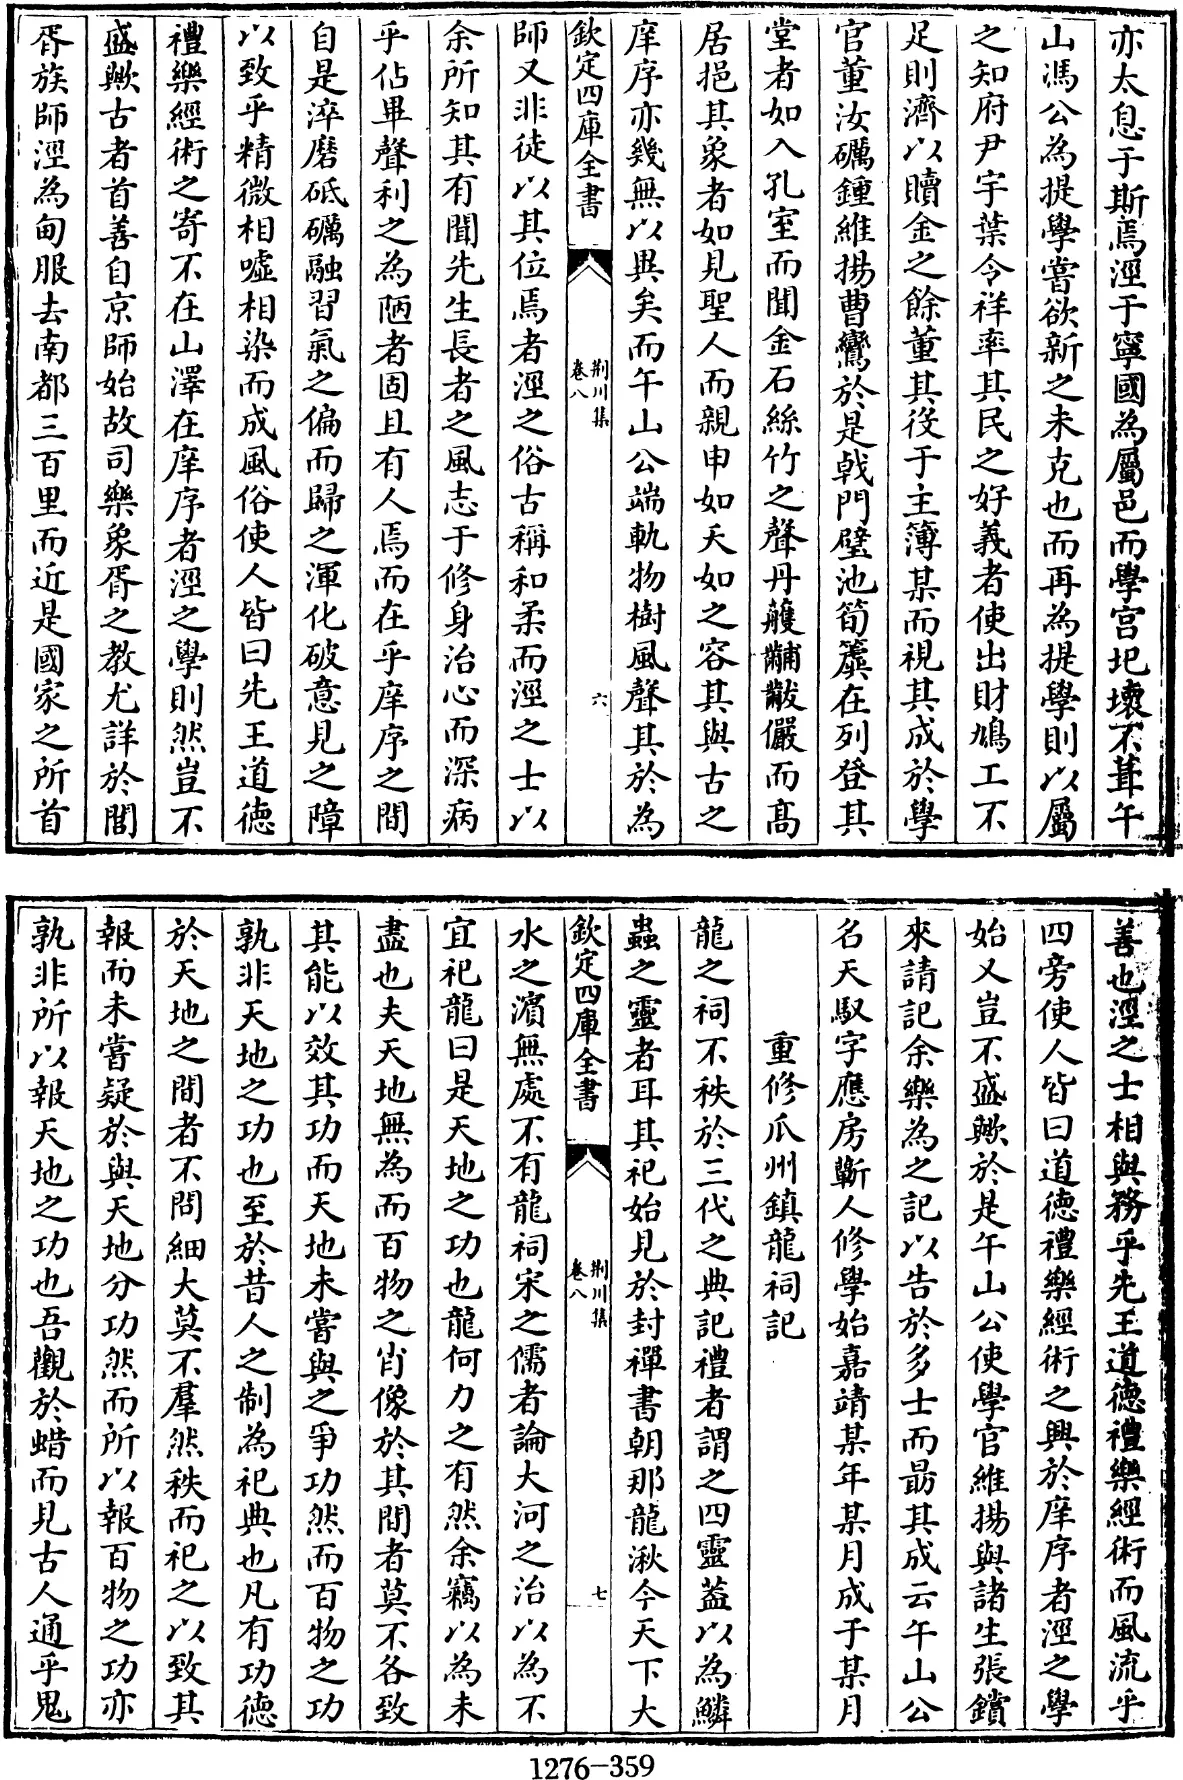 亦太息于斯焉涇于寧國為屬邑而學宫圯壞不葺午
山馮公為提學嘗欲新之未克也而再為提學則以屬
之知府尹宇葉令祥率其民之好義者使出財鳩工不
足則濟以贖金之餘董其役于主簿某而視其成於學
官董汝礪鍾維揚曹鸞於是㦸門璧池筍簴在列登其
堂者如入孔室而聞金石絲竹之聲丹雘黼黻儼而高
居挹其象者如見聖人而親申如夭如之容其與古之
庠序亦幾無以異矣而午山公端軌物樹風聲其於為
欽定四庫全書
荆川集
卷八
六
師又非徒以其位焉者涇之俗古稱和柔而涇之士以
余所知其有聞先生長者之風志于修身治心而深病
乎佔畢聲利之為陋者固且有人焉而在乎庠序之間
自是淬磨砥礪融習氣之偏而歸之渾化破意見之障
以致乎精微相噓相染而成風俗使人皆曰先王道德
禮樂經術之寄不在山澤在庠序者涇之學則然豈不
盛歟古者首善自京師始故司樂象胥之教尤詳於閭
胥族師涇為甸服去南都三百里而近是國家之所首
善也涇之士相與務乎先王道德禮樂經術而風流乎
四旁使人皆曰道德禮樂經術之興於庠序者涇之學
始又豈不盛歟於是午山公使學官維揚與諸生張鑚
來請記余樂為之記以告於多士而勗其成云午山公
名天馭字應房蘄人修學始嘉靖某年某月成于某月
重修瓜州鎮龍祠記
龍之祠不秩於三代之典記禮者謂之四靈葢以為鱗
蟲之靈者耳其祀始見於封禪書朝那龍湫今天下大
欽定四庫全書
荆川集
卷八
七
水之濱無處不有龍祠宋之儒者論大河之治以為不
宜祀龍曰是天地之功也龍何力之有然余竊以為未
盡也夫天地無為而百物之肖像於其間者莫不各致
其能以效其功而天地未嘗與之爭功然而百物之功
孰非天地之功也至於昔人之制為祀典也凡有功德
於天地之間者不問細大莫不羣然秩而祀之以致其
報而未嘗疑於與天地分功然而所以報百物之功亦
孰非所以報天地之功也吾觀於蜡而見古人通乎鬼
1276-359